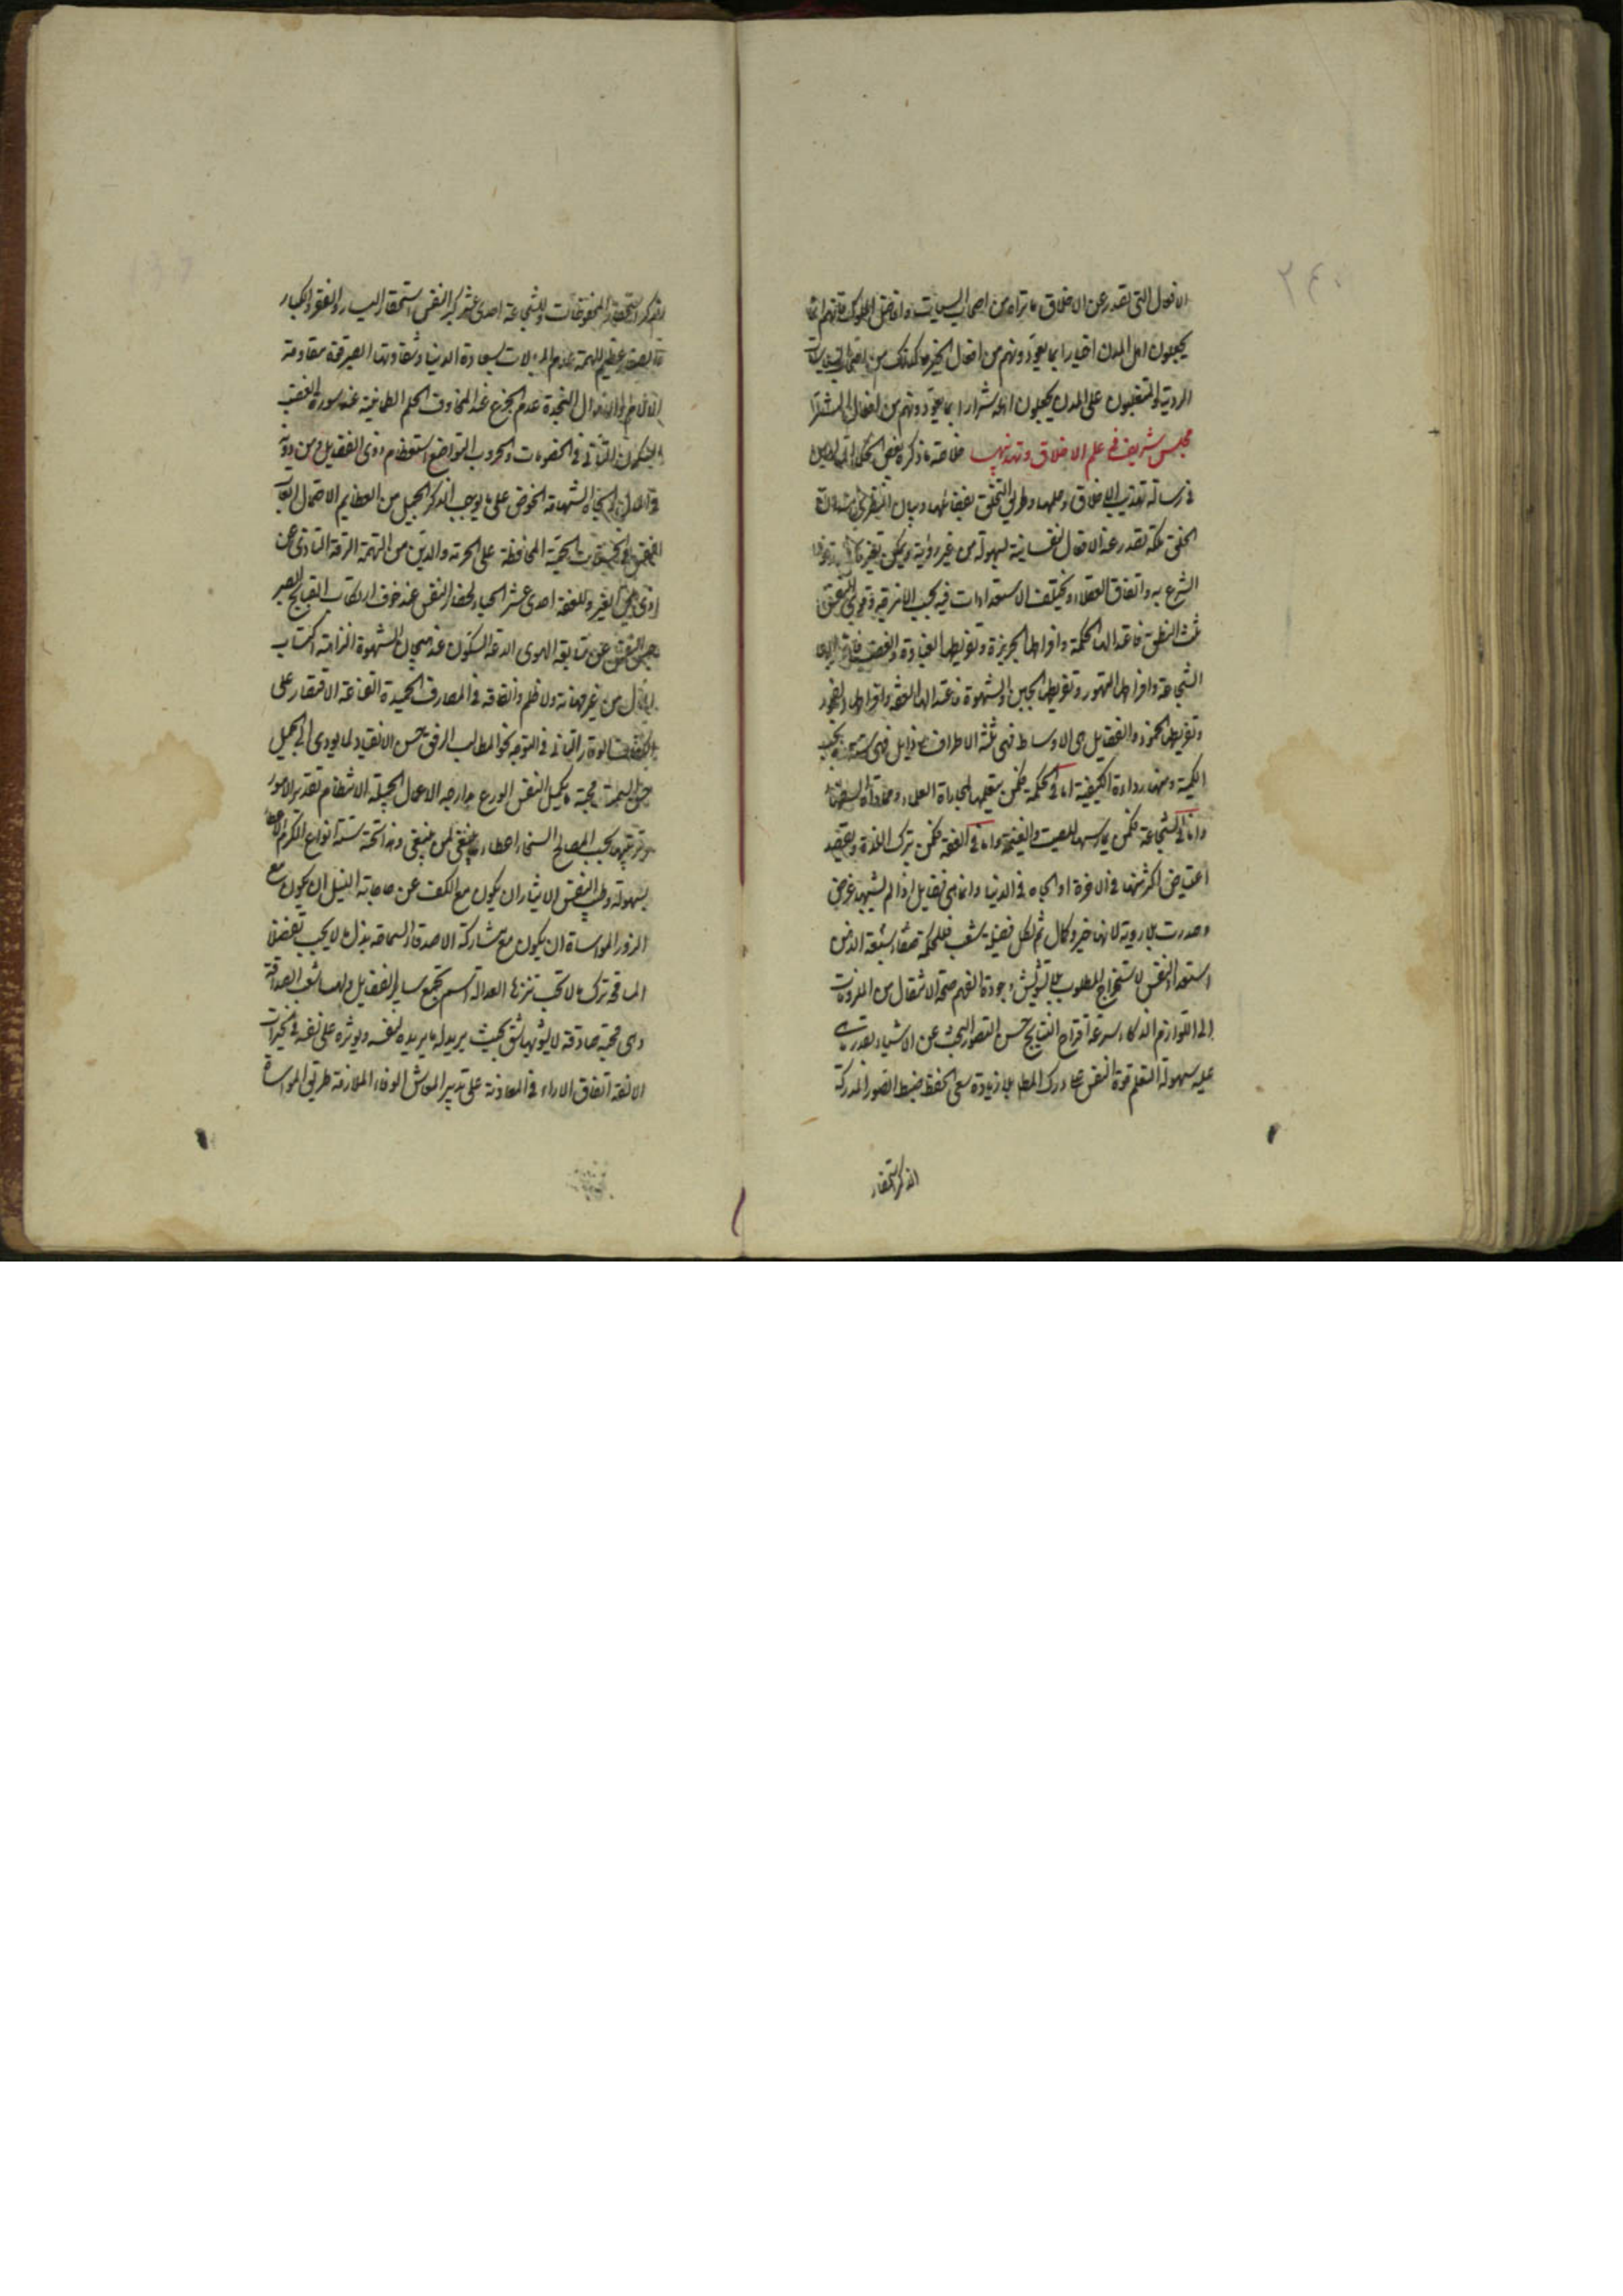 ٢٤٠
الافعال التى تصدر عن الاخلاق ما نراه من اصحاب السياسات وافاضل الملوك فانهم انما
يجعلون اهل المدن اخيارا بما يعودونهم من افعال الخير وكذلك من اصحاب السياسات
الردية والمتغلبون على المدن يجعلون اهلها شرارا بما يعودونهم من افعال الشر
مجلس شريف فى علم الاخلاق وتهذيبها خلاصة ما ذكره بعض الحكماء
فى رسالة تهذيب الاخلاق وعلمها وطريق التخلق بفضائلها وبيان
الخلق ملكة تصدر عنه الافعال نفسانية بسهولة من غير روية ويمكن تغيره
الشرع به واتفاق العقلاء ويختلف الاستعدادات فيه بحسب الامزجة وقوى النفس
ثلث النطق فاعتدالها الحكمة وافراطها الجربزة وتفريطها الغباوة والغضب فاعتدالها
الشجاعة وافراطها التهور وتفريطها الجبن والشهوة فاعتدالها العفة وافراطها الفجور
وتفريطها الخمود والفضايل هى الاوساط فهى ثلثة الاطراف رذايل فهى ستة بحسب
الكمية ومنها رداءة الكيفية اما فى الحكمة فكمن يتعلمها لمجاراة العلماء ومماراة السفهاء
واما فى الشجاعة فكمن يمارسها للصيت والغنيمة واما فى العفة فكمن يترك اللذة ويقصد
اعتياض اكثر منها فى الاخرة او الجاه فى الدنيا وانما هى فضايل اذا لم يشبها غرض
وصدرت بلا روية لانها خير وكمال ثم لكل فضيلة شعب فللحكمة سبعة الذهن
استعداد النفس لاستخراج المطلوب بلا تشويش وجودة الفهم صحة الانتقال من الملزومات
الى اللوازم الذكاء سرعة اقتراح النتايج حسن التصور البحث عن الاشياء بقدر ما هى
عليه سهولة التعلم قوة النفس على درك المطلب بلا زيادة سعى الحفظ ضبط الصور المدركة
الذكر استحضار
الذكر استحضار المحفوظات وللشجاعة احدى عشر كبر النفس استحقار اليسار والفقر والكبار
والصغر عظم الهمة عدم المبالاة بسعادة الدنيا وشقاوتها الصبر قوة مقاومة
الالام والاهوال النجدة عدم الجزع عند المخاوف الحلم الطمانينة عند سورة الغضب
السكون التأنى فى الخصومات والحروب التواضع استعظام ذوى الفضايل ومن دونه
فى المال والجاه الشهامة الحرص على ما يوجب الذكر الجميل من العظايم الاحتمال اتعاب
النفس فى الحسنات الحمية المحافظة على الحرمة والدين من التهمة الرقة التأذى عن
اذى يلحق الغير وللعفة احدى عشر الحياء انحصار النفس عند خوف ارتكاب القبايح الصبر
حبس النفس عن متابعة الهوى الدعة السكون عند هيجان الشهوة النزاهة اكتساب
المال من غير مهانة ولا ظلم وانفاقه فى المصارف الحميدة القناعة الاقتصار على
الكفاف الوقار التأنى فى التوجه نحو المطالب الرفق حسن الانقياد لما يودى الى الجميل
حسن السمت محبة ما يكمل النفس الورع ملازمة الاعمال الجميلة الانتظام تقدير الامور
وترتيبها بحسب المصالح السخاء اعطاء ما ينبغى لمن ينبغى وهذا تحته ستة انواع الكرم الاعطاء
بسهولة وطيب النفس الايثار ان يكون مع الكف عن حاجاته النيل ان يكون مع
السرور المواساة ان يكون مع مشاركة الاصدقاء السماحة بذل ما لا يجب تفضلا
المسامحة ترك ما لا يجب تنزها العدالة اسم يجمع ساير الفضايل ولها شعب الصداقة
وهى محبة صادقة لا يشوبها شىء بحيث يريد له ما يريده لنفسه ويوثره على نفسه فى الخيرات
الالفة اتفاق الاراء فى المعاونة على تدبير المعاش الوفاء ملازمة طريق المواساة